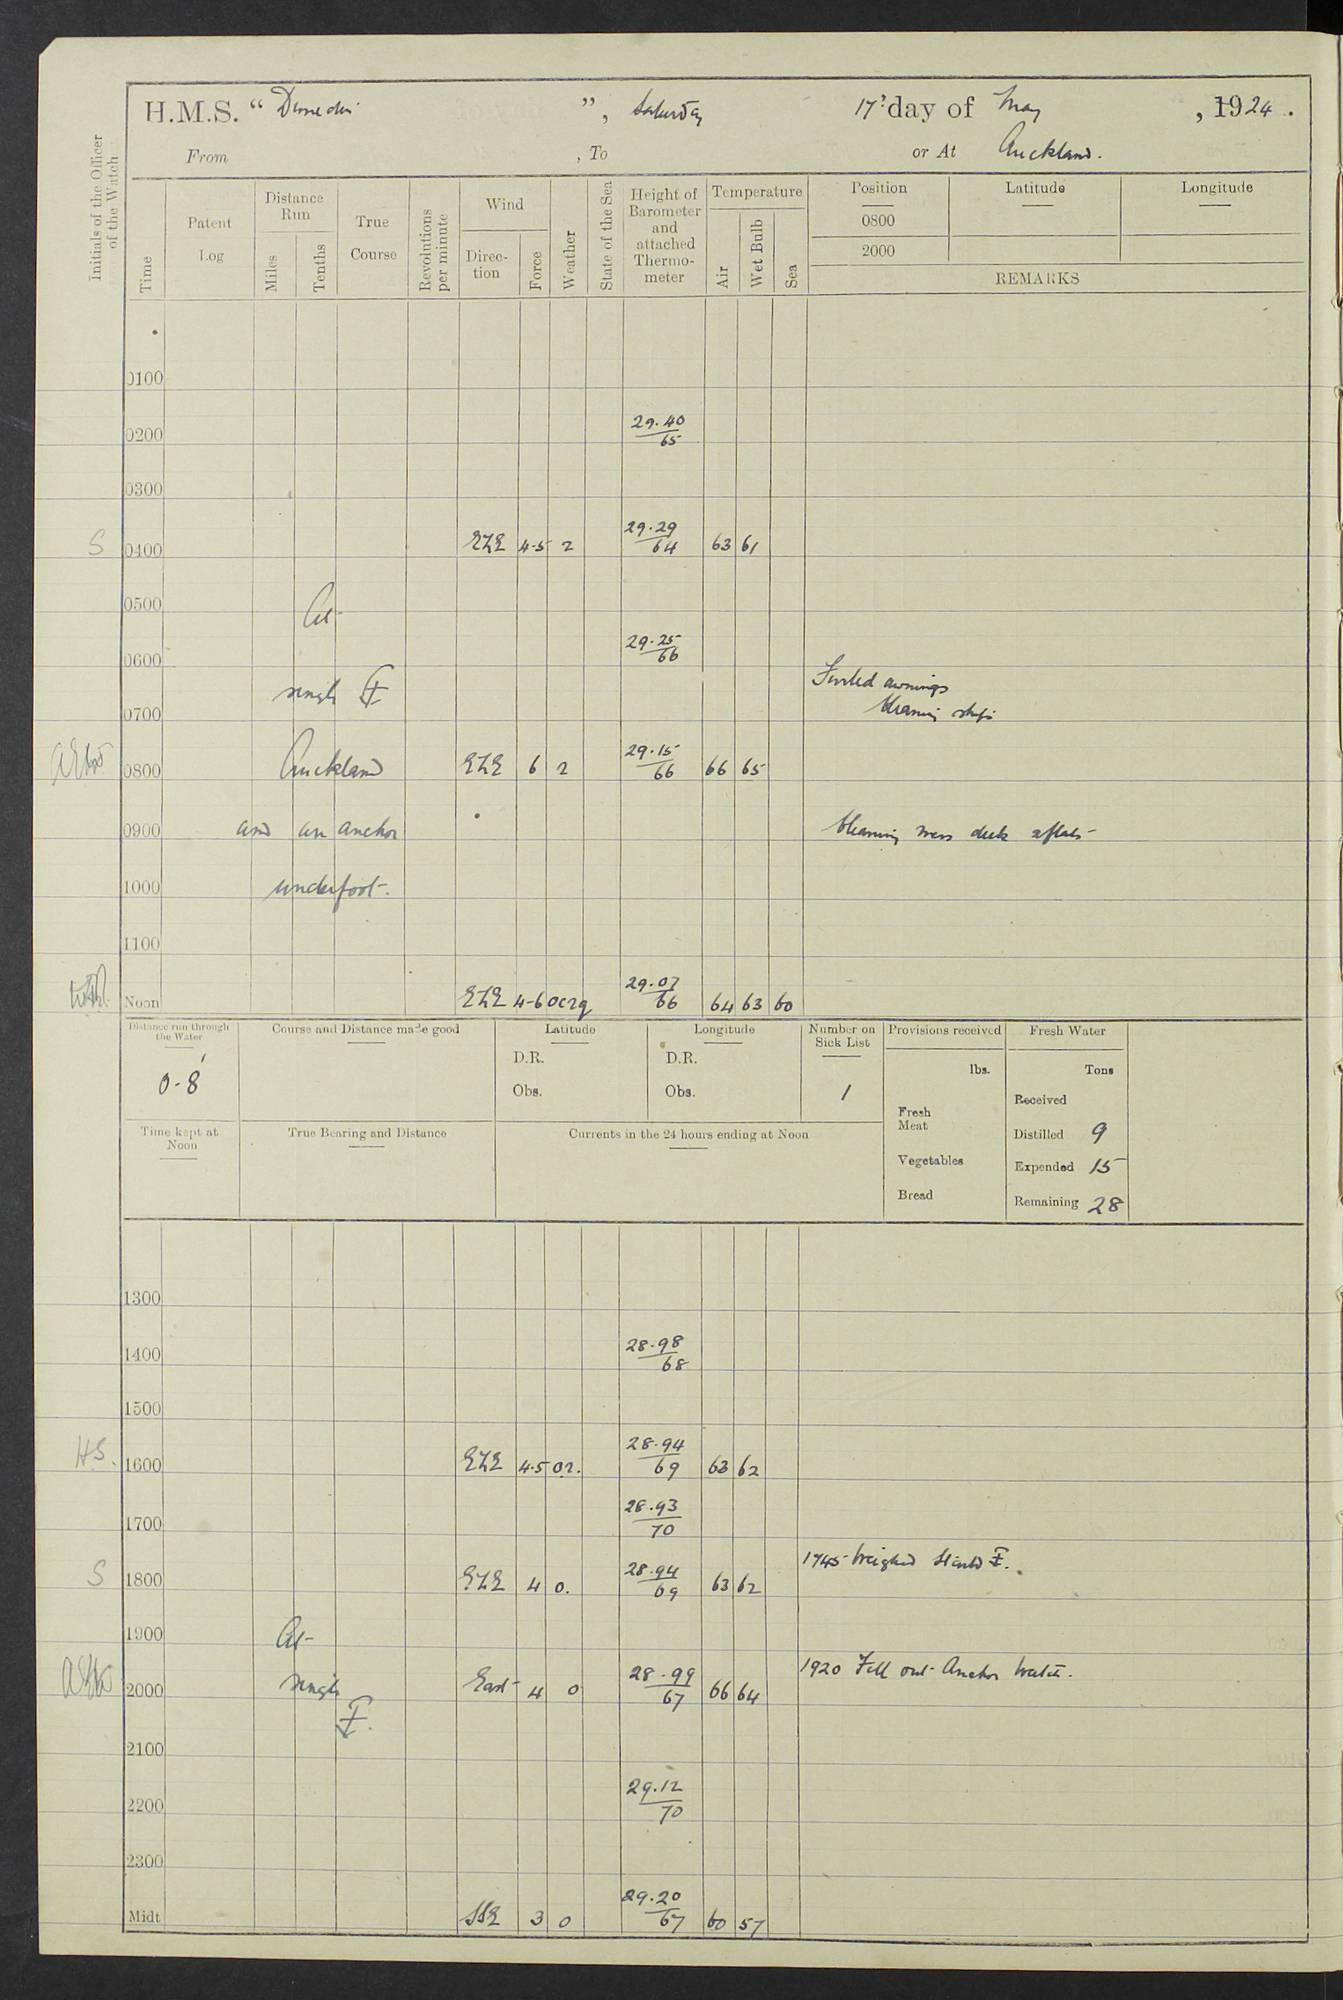 H.M.S. “ Dunedin ”, Saturday 17th day of May , 1924.
From , To or At Auckland.
Initials of the Officer of the Watch
Time
Patent Log
Distance Run
Miles
Tenths
True Course
Revolutions per minute
Wind
Direc-tion
Force
Weather
State of the Sea
Height of Barometer and attached Thermo-meter
Temperature
Air
Wet Bulb
Sea
Position Latitude Longitude
0800
2000
REMARKS
0100
29.40
0200 65
0300
29.29
S 0400 ESE 4-5 2 64 63 61
0500 At
29.25
0600 66
Furled awnings
single
0700 Cleaning ship
29.15
0800 Auckland ESE 6 2 66 66 65
0900 and an anchor Cleaning mess deck & flats
1000 underfoot.
1100
29.07
Noon ESE 4-6 ocrq 66 64 63 60
Distance run through the Water
0.8
Course and Distance made good
Latitude
D.R.
Obs.
Longitude
D.R.
Obs.
Number on Sick List
1
Provisions received
lbs.
Fresh Meat
Vegetables
Bread
Fresh Water
Tons
Received
Distilled 9
Expended 15
Remaining 28
Time kept at Noon
True Bearing and Distance
Currents in the 24 hours ending at Noon
1300
28.98
1400 68
1500
28.94
H.S. 1600 ESE 4.5 or. 69 63 62
28.93
1700 70
1745 Weighed
28.94
S 1800 ESE 4 o. 69 63 62
1900 At
1920 Fell out Anchor Watch.
28.99
2000 single East 4 o 67 66 64
2100
29.12
2200 70
2300
29.20
Midt SSE 3 o 67 60 57